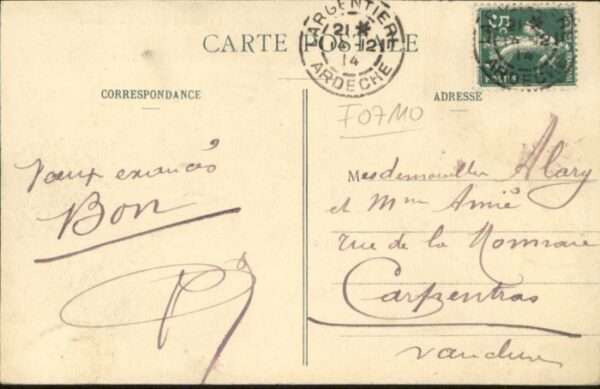 CARTE POSTALE
LARGENTIERE
21 * 12
14
ARDECHE
CORRESPONDANCE
ADRESSE
F07M0
Vœux exaucés
Bon
Mesdemoiselles Alary
et Mme Amié
rue de la Monnaie
Carpentras
Vaucluse